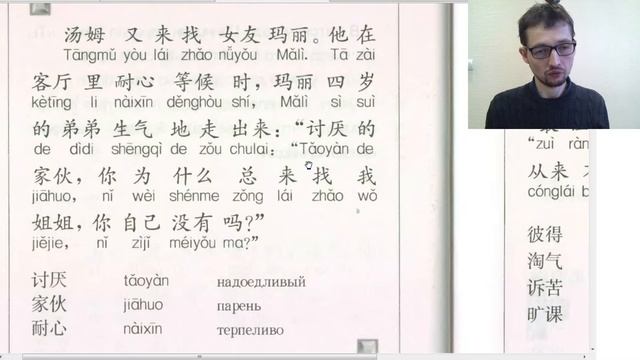 汤姆 又 来 找 女友 玛丽。他 在
Tāngmǔ yòu lái zhǎo nǚyǒu Mǎlì. Tā zài
客厅 里 耐心 等候 时，玛丽 四 岁
kètīng li nàixīn děnghòu shí, Mǎlì sì suì
的 弟弟 生气 地 走 出来：“讨厌 的
de dìdi shēngqì de zǒu chulai: “Tǎoyàn de
家伙，你 为 什么 总 来 找 我
jiāhuo, nǐ wèi shénme zǒng lái zhǎo wǒ
姐姐，你 自己 没有 吗？”
jiějie, nǐ zìjǐ méiyǒu ma?”
讨厌 tǎoyàn надоедливый
家伙 jiāhuo парень
耐心 nàixīn терпеливо
从来
cónglái
彼得
淘气
诉苦
旷课